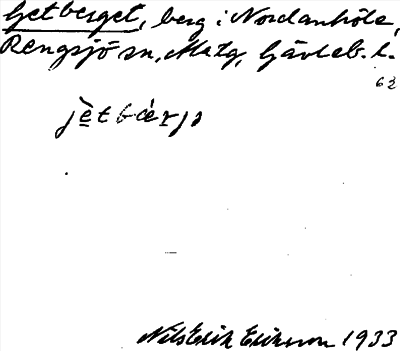 Getberget, berg i Nordanhöle,
Rengsjö sn, Matg, Gävleb. l.
62
jètbærjə
Nils Erik Eriksson 1933